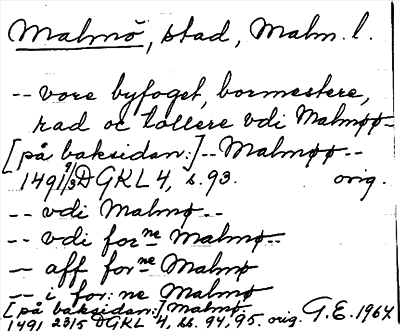 Malmö, stad, Malm. l.
-- vore byfoget, bormestere,
rad oc tollere vdi Malmøø--
[på baksidan:]-- Malmøø--
1491 9/3 DGKL 4, s. 93. orig.
-- vdi Malmø--
-- vdi for ne Malmø--
-- aff for ne Malmø
-- i for: ne Malmø
[på baksidan:] Malmø
1491 23/5 DGKL 4, ss. 94, 95. orig. G.E. 1967